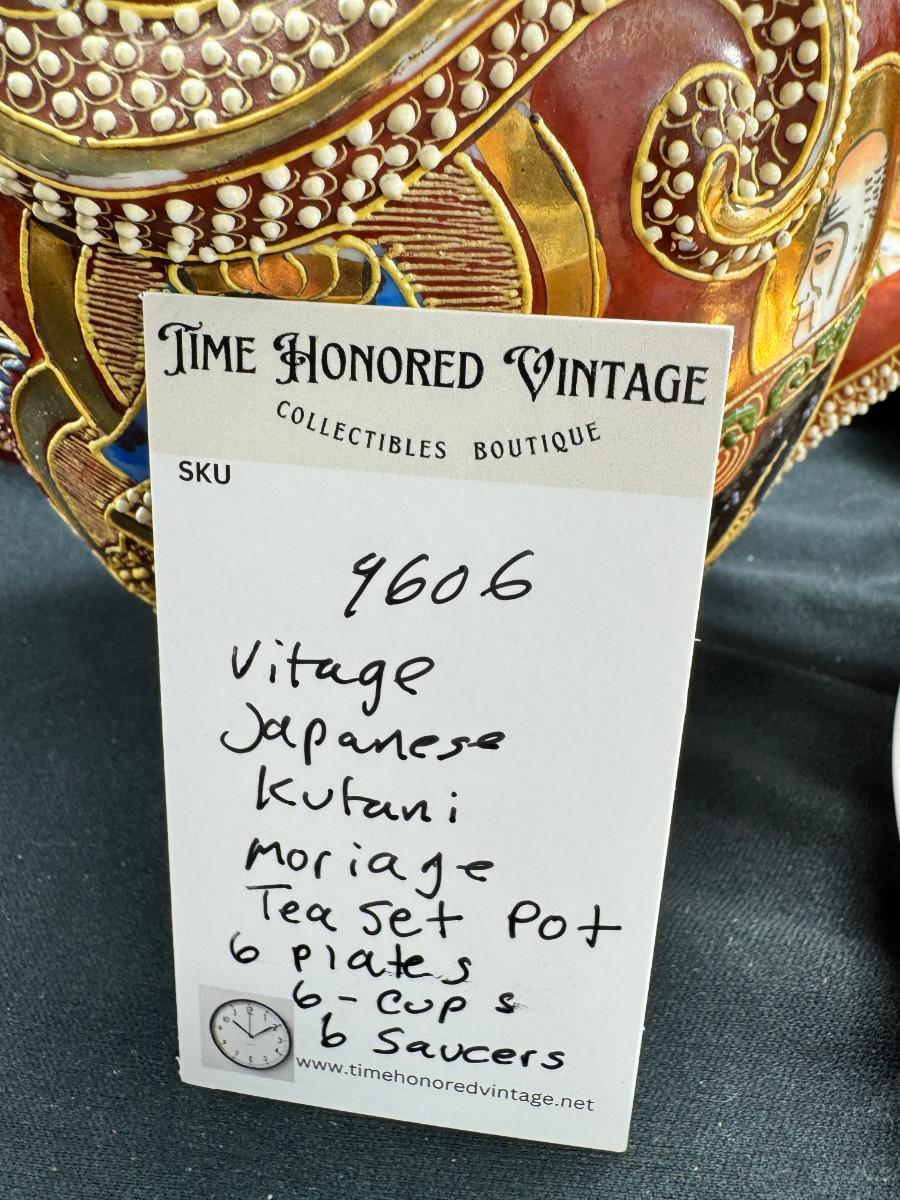 TIME HONORED VINTAGE
COLLECTIBLES BOUTIQUE
SKU
9606
Vitage
Japanese
Kutani
Moriage
Tea Set Pot
6 Plates
6 - Cups
6 Saucers
www.timehonoredvintage.net